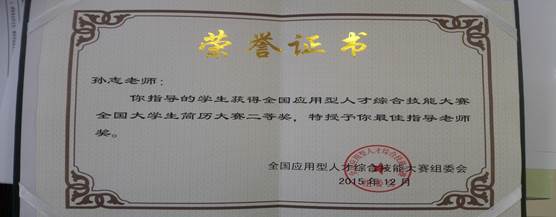 荣誉证书
孙志老师：
你指导的学生获得全国应用型人才综合技能大赛
全国大学生简历大赛二等奖，特授予你最佳指导老师
奖。
全国应用型人才综合技能大赛组委会
2015年12月